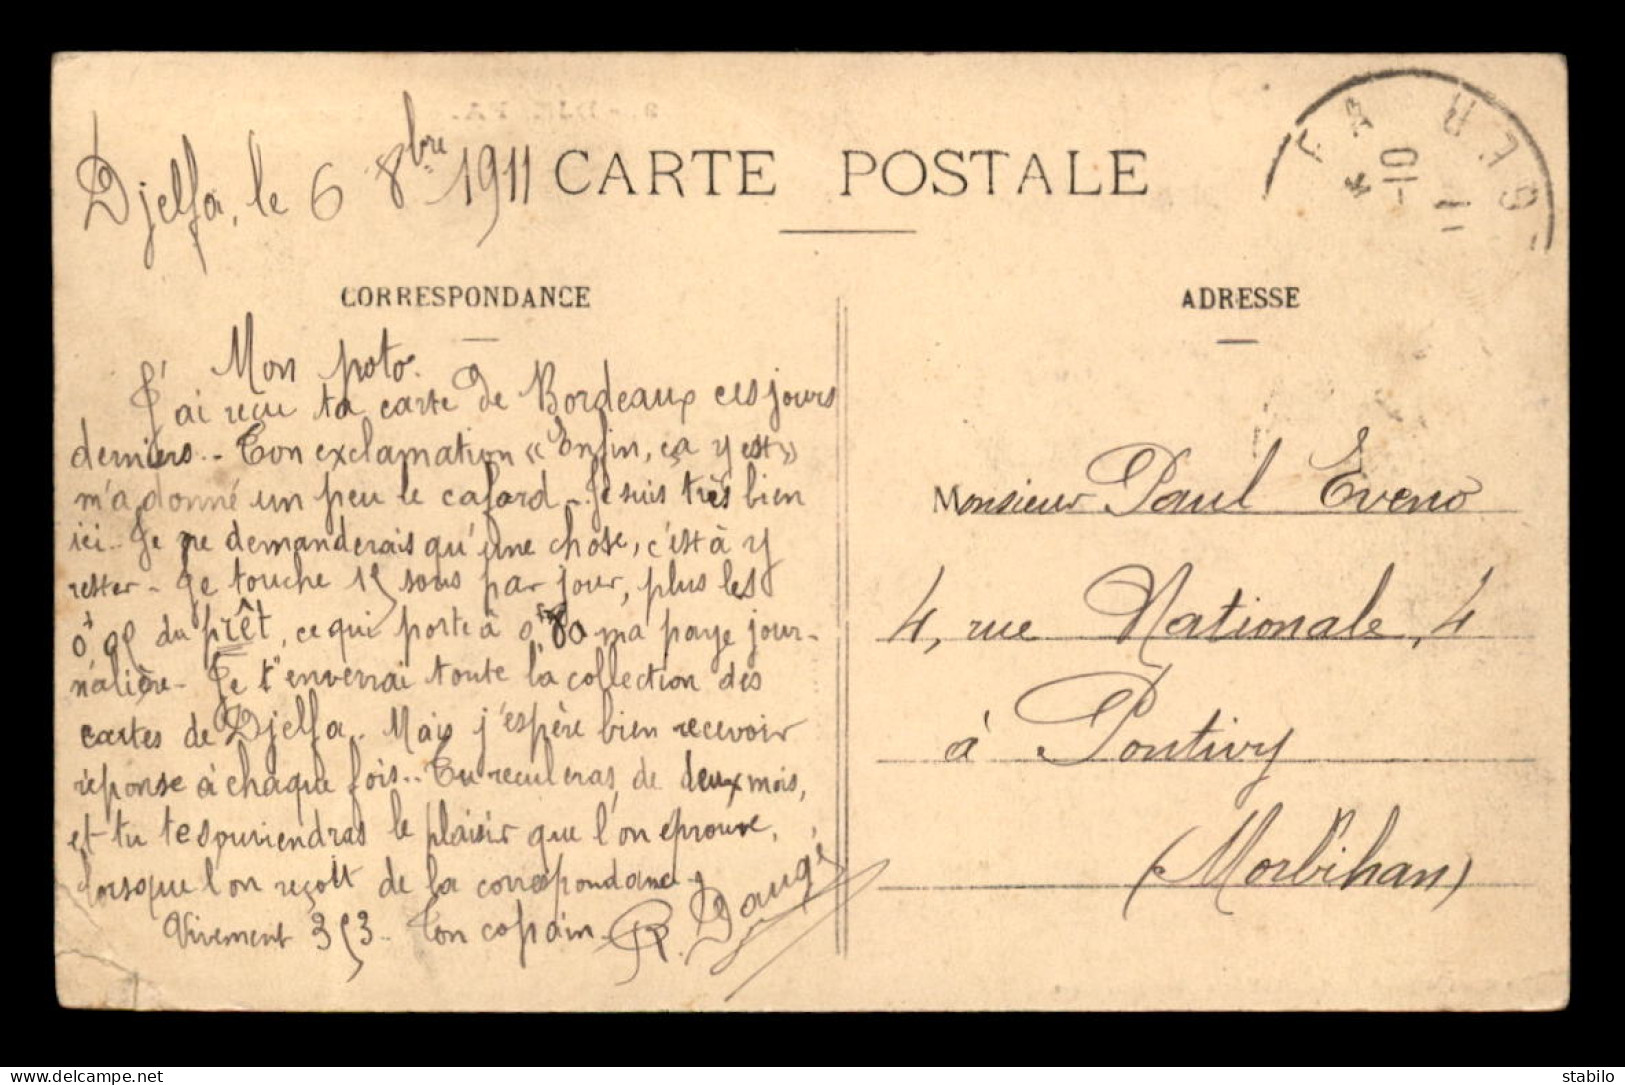 Djelfa, le 6 8bre 1911
CARTE POSTALE
CORRESPONDANCE
Mon poto.
J'ai reçu ta carte de Bordeaux ces jours
derniers.- Ton exclamation «Enfin, ça y est»
m'a donné un peu le cafard - Je suis très bien
ici.- Je ne demanderais qu'une chose, c'est à y
rester - Je touche 15 sous par jour, plus les
0f05 du prêt, ce qui porte à 0fr80 ma paye jour-
nalière - Je t'enverrai toute la collection des
cartes de Djelfa. Mais j'espère bien recevoir
réponse à chaque fois.- Tu reculeras de deux mois,
et tu te souviendras le plaisir que l'on éprouve,
lorsque l'on reçoit de la correspondance.
Vivement 353 - Ton copain -
R. Daugé
ADRESSE
Monsieur Paul Eveno
4, rue Nationale, 4
à Pontivy
(Morbihan)
FA
10-
11
stabilo